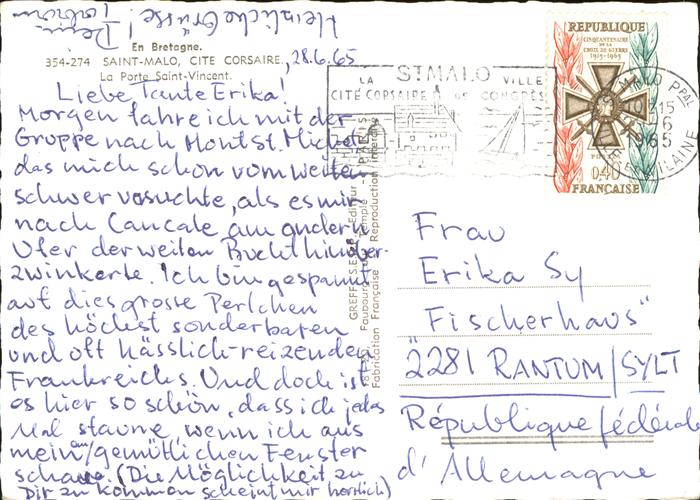 En Bretagne.
354-274 SAINT-MALO, CITE CORSAIRE.
La Porte Saint-Vincent.
28.6.65
Liebe Tante Erika!
Morgen fahre ich mit der
Gruppe nach Mont St. Michel
das mich schon vom weiten
schwer versuchte, als es mir
nach Cancale am andern
Ufer der weiten Bucht hinüber-
zwinkerte. Ich bin gespannt
auf dies grosse Perlchen
des höchst sonderbaren
und oft hässlich-reizenden
Frankreichs. Und doch ist
es hier so schön, dass ich jedes
Mal staune, wenn ich aus
mein am gemütlichen Fenster
schaue. (Die Möglichkeit zu
Dir zu kommen scheint mir herrlich)
Herzliche Grüsse! Dein
GREFF S.E.
Editeur
Faubourg du Temple
PARIS
Fabrication Française
Reproduction interdite
LA ST MALO VILLE
CITÉ CORSAIRE DES CONGRÈS
ST MALO PPAL
15
6
1965
ILLE VILAINE
REPUBLIQUE
CINQUANTENAIRE
DE LA
CROIX DE GUERRE
1915-1965
POSTES
0,40
FRANÇAISE
Frau
Erika Sy
"Fischerhaus"
2281 RANTUM/SYLT
République fédérale
d'Allemagne